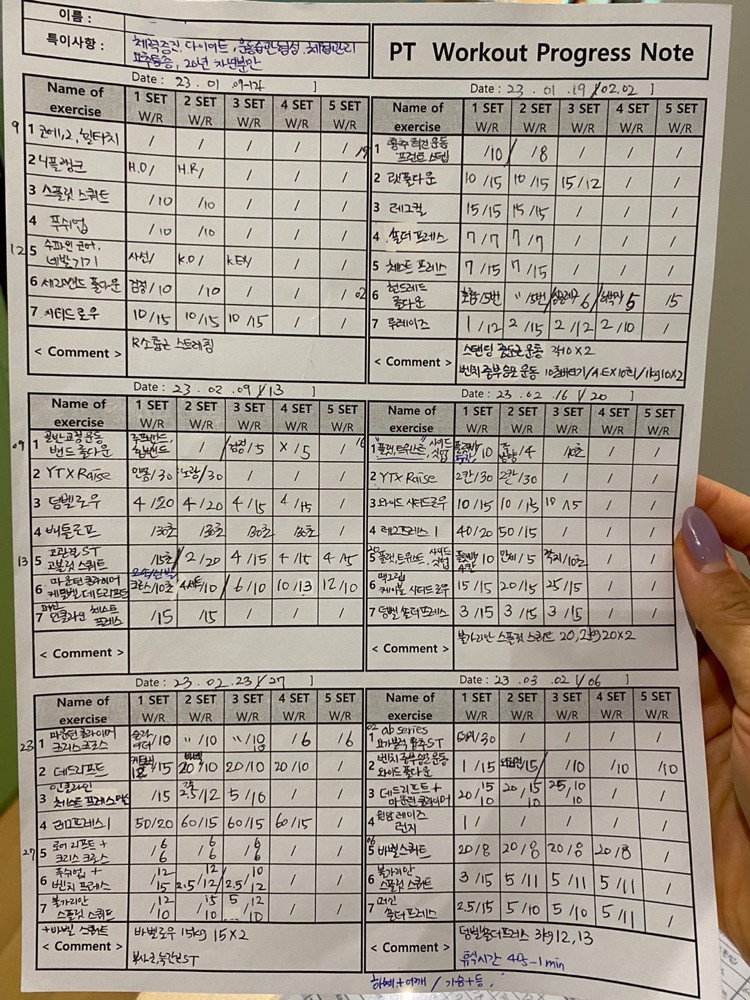 이름 :
특이사항 :
체력증진, 다이어트, 운동습관형성, 체형관리
20년 자연분만
PT Workout Progress Note
Date : 23 . 01 . 09-12 ]
Name of exercise 1 SET W/R 2 SET W/R 3 SET W/R 4 SET W/R 5 SET W/R
9 1 코어1,2, 힐터치 / / / / /
2 니플랭크 H.O/ H.R/ / / /
3 스플릿 스쿼트 /10 /10 / / /
4 푸쉬업 /10 /10 / / /
12 5 수파인 코어, 네발기기 사선/ K.O/ K.EX/ / /
6 세라밴드 풀다운 검정/10 /10 / / /
7 시티드로우 10/15 10/15 10/15 / /
< Comment > R/소흉근 스트레칭
Date : 23 . 01 . 19 / 02.02 ]
Name of exercise 1 SET W/R 2 SET W/R 3 SET W/R 4 SET W/R 5 SET W/R
19 1 흉추 회전 운동 프런트 스텝 /10 /8 / / /
2 랫풀다운 10/15 10/15 15/12 / /
3 레그컬 15/15 15/15 / / /
4 숄더프레스 7/7 7/7 / / /
5 체스트 프레스 7/15 7/15 / / /
02 6 헌드레드 풀다운 호흡/5번 "/5번 6 5 15
7 투레이즈 1/12 2/15 2/12 2/10 /
< Comment > 스탠딩 중둔근 운동 각10×2
Date : 23 . 02 . 09 / 13 ]
Name of exercise 1 SET W/R 2 SET W/R 3 SET W/R 4 SET W/R 5 SET W/R
09 1 골반교정운동 밴드 풀다운 루프밴드, 힙밴드 / 검정/5 X/5 /
2 YTX Raise 맨몸/30 노랑/30 / / /
3 덤벨로우 4/20 4/20 4/15 4/15 /
4 배틀로프 /30초 /30초 /30초 /30초 /
13 5 고관절ST 고블릿 스쿼트 /15초 2/20 4/15 4/15 4/15
6 마운틴클라이머 케틀벨 데드리프트 /10초 4세트/10 6/10 10/13 12/10
7 머신 인클라인 체스트 프레스 /15 /15 / / /
< Comment >
Date : 23 . 02 . 16 / 20 ]
Name of exercise 1 SET W/R 2 SET W/R 3 SET W/R 4 SET W/R 5 SET W/R
16 1 플랭, 트위스트, 사이드 싯업 /10 /4 /10초 / /
2 YTX Raise 2칸/30 2칸/30 / / /
3 와이드 시티드로우 10/15 10/15 10/15 / /
4 레그프레스 1 40/20 50/15 / / /
20 5 플랭, 트위스트, 사이드 싯업 /10 /5 /10초 / /
6 맥그립 케이블 시티드로우 15/15 20/15 25/15 / /
7 덤벨 숄더프레스 3/15 3/15 3/15 / /
< Comment > 불가리안 스플릿 스쿼트 20, 2kg 20×2
Date : 23 . 02 . 23 / 27 ]
Name of exercise 1 SET W/R 2 SET W/R 3 SET W/R 4 SET W/R 5 SET W/R
23 1 마운틴 클라이머 크리스크로스 /10 "/10 "/10 10 /6 /6
2 데드리프트 케틀벨 12/15 바벨 20/10 20/10 20/10 /
3 인클라인 체스트 프레스 머신 /15 2.5/12 5/10 / /
4 레그프레스 1 50/20 60/15 60/15 60/15 /
27 5 로어 리프트 + 크리스 크로스 /6 6 /6 6 /6 6 / /
6 푸쉬업 + 벤치 프레스 /12 15 12 2.5/12 10 2.5/12 / /
7 불가리안 스플릿 스쿼트 /12 10 15 10 5 12 10 / /
+바벨 스쿼트
< Comment > 바벨로우 15kg 15×2
Date : 23 . 03 . 02 / 06 ]
Name of exercise 1 SET W/R 2 SET W/R 3 SET W/R 4 SET W/R 5 SET W/R
02 1 ab series 요가블럭 흉추ST /30 / / / /
2 벤치 중부승모 운동 와이드 풀다운 1/15 /15 /10 /10 /10
3 데드리프트 + 마운틴 클라이머 20/15 10 20/15 10 25/10 10 / /
4 원암 레이즈 런지 1/ / / / /
06 5 바벨스쿼트 20/8 20/8 20/8 20/8 /
6 불가리안 스플릿 스쿼트 3/15 5/11 5/11 5/11 /
7 머신 숄더프레스 2.5/15 5/10 5/10 5/11 /
< Comment > 덤벨숄더프레스 3kg 12, 13
휴식시간 40s-1min
하체+어깨 / 가슴+등.